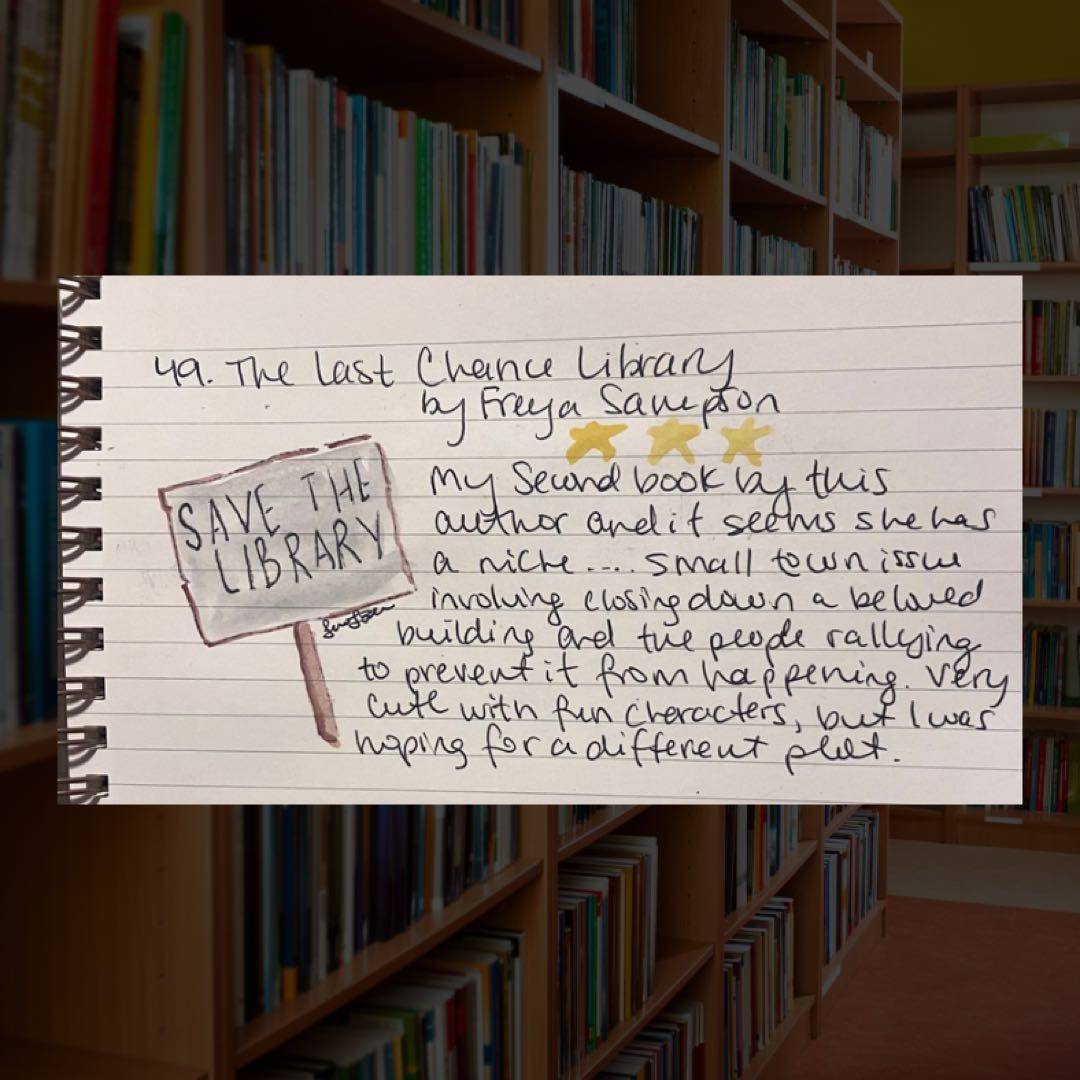 49. The Last Chance Library
by Freya Sampson
SAVE THE
LIBRARY
My second book by this
author and it seems she has
a niche.... small town issue
involving closing down a beloved
building and the people rallying
to prevent it from happening. Very
cute with fun characters, but I was
hoping for a different plot.